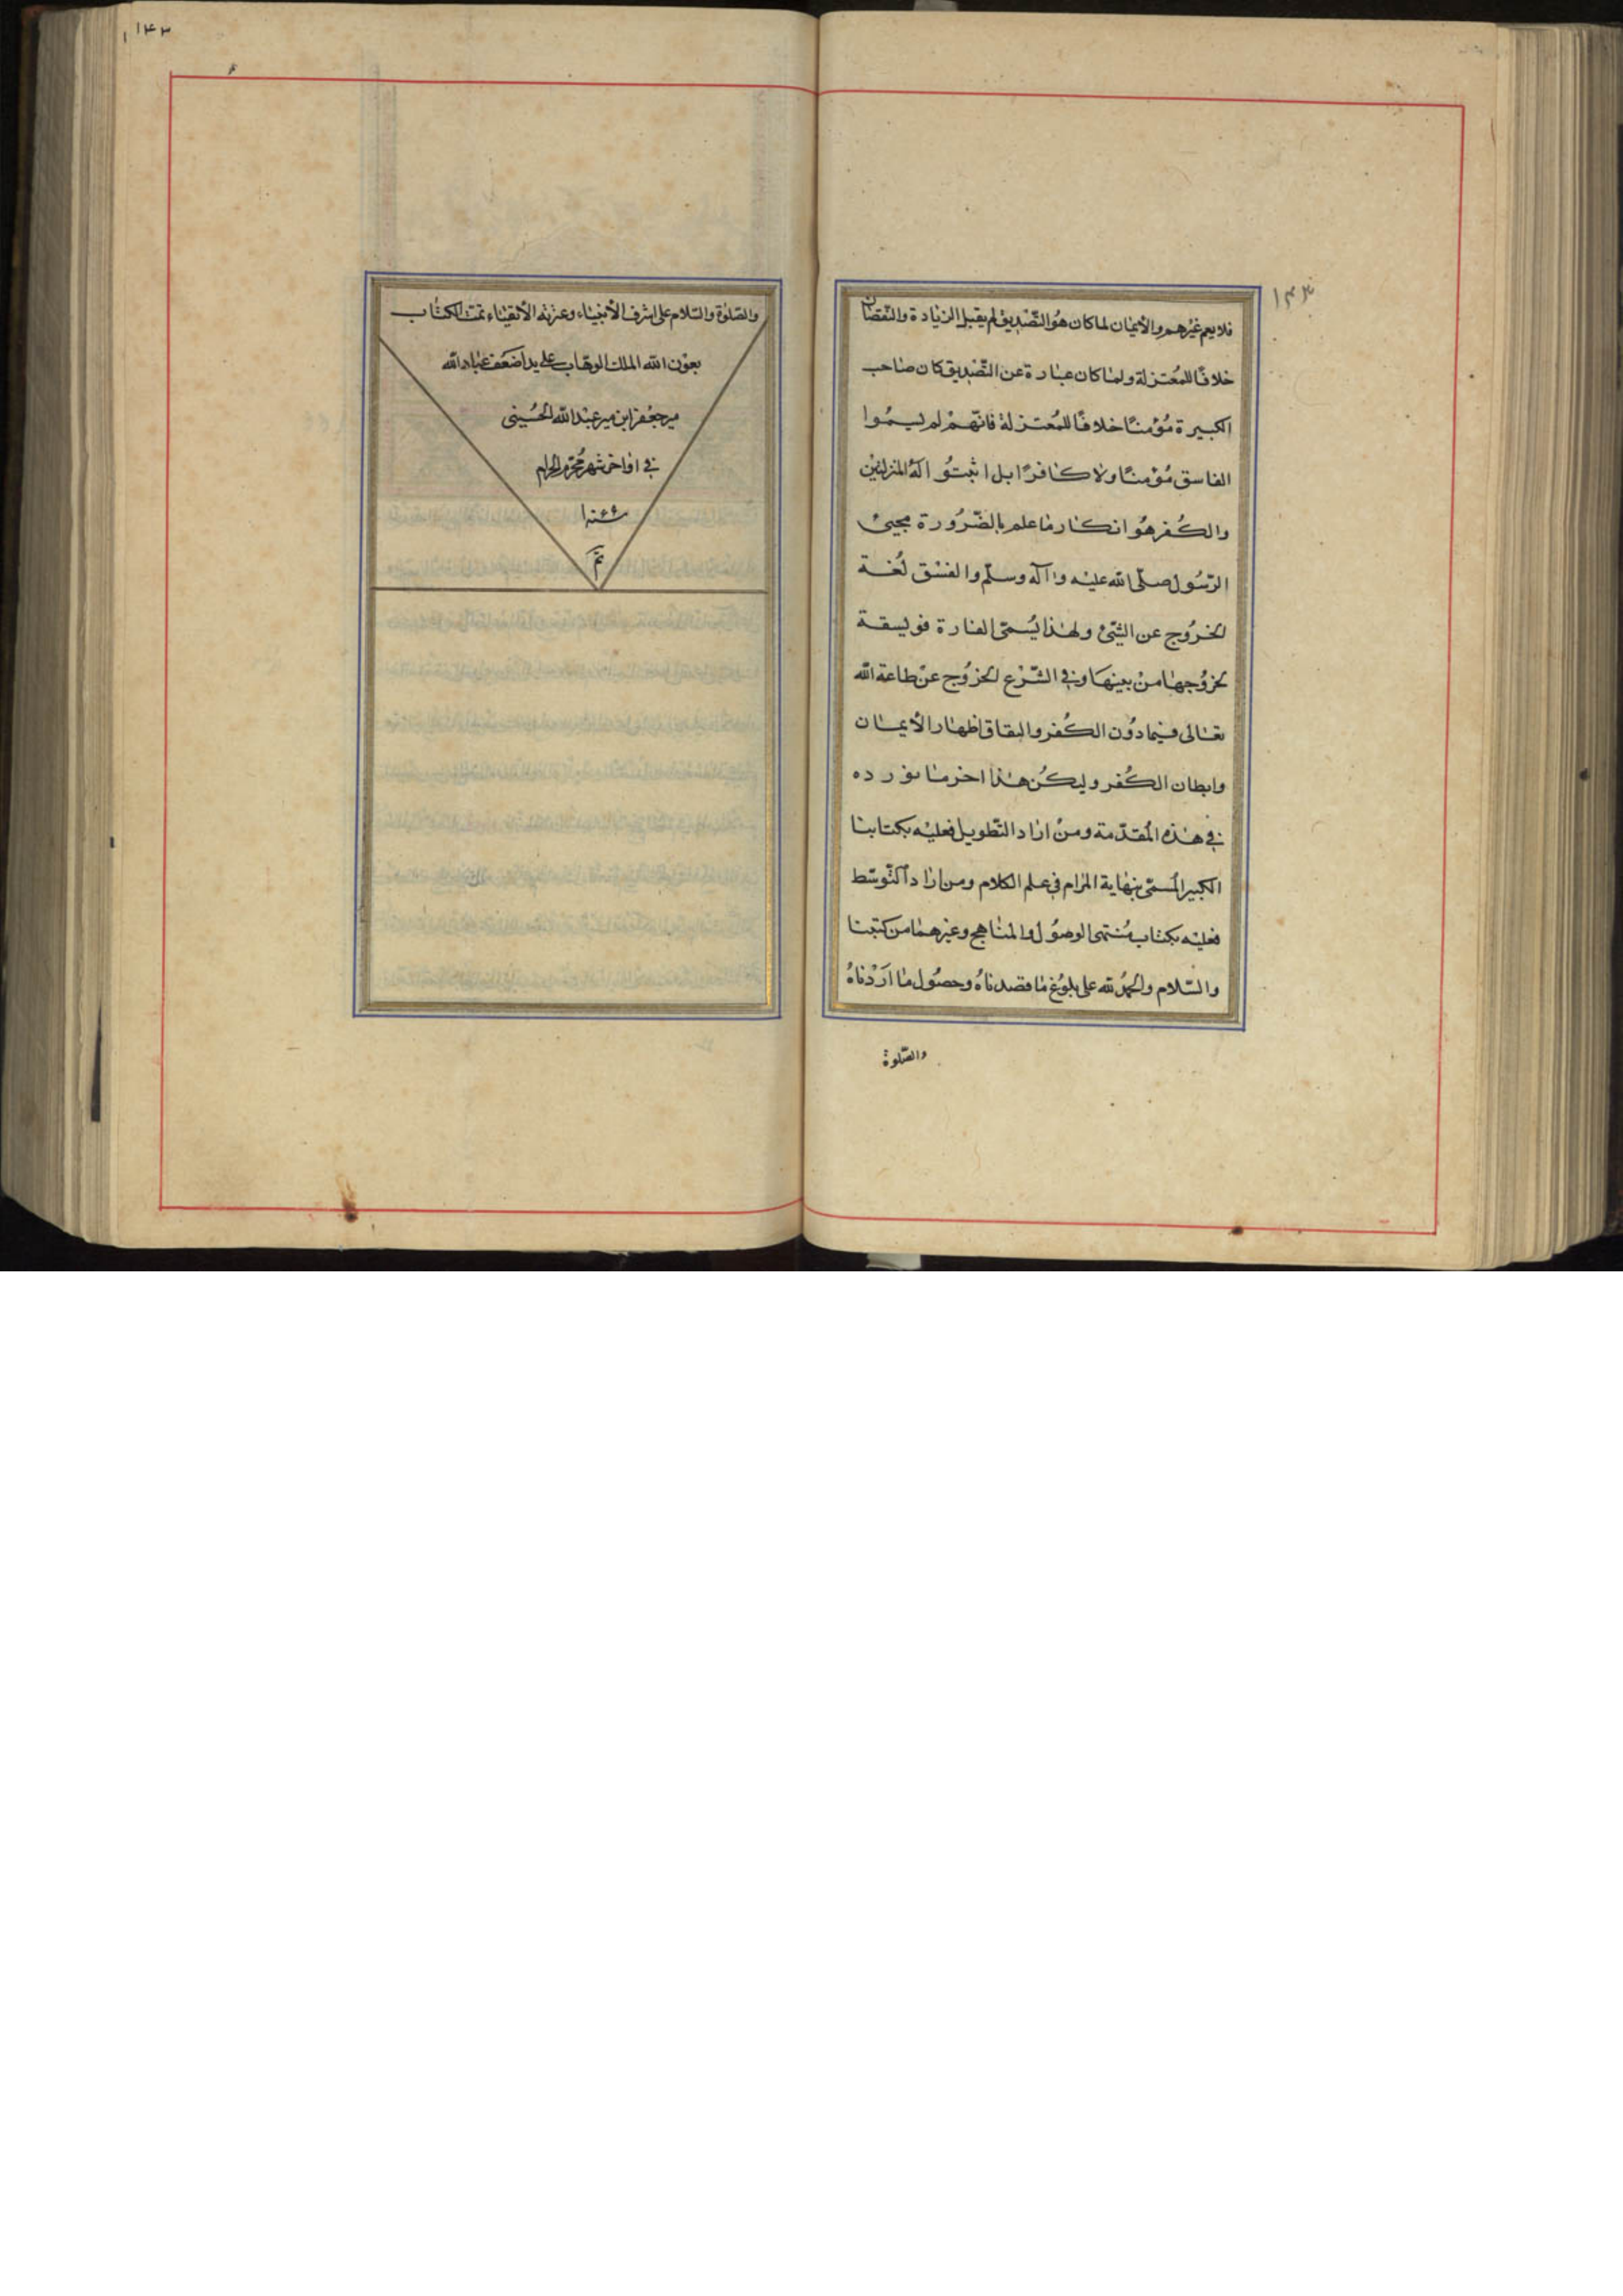 ١٤٣
فلا يعم غيرهم والأيمان لما كان هو التصديق لم يقبل الزيادة والنقصان
خلافًا للمعتزلة ولما كان عبارة عن التصديق كان صاحب
الكبيرة مؤمنًا خلافًا للمعتزلة فانّهم لم يسمّوا
الفاسق مؤمنًا ولا كافرًا بل اثبتوا له المنزلتين
والكفر هو انكار ما علم بالضرورة مجيئ
الرّسول صلّى الله عليه وآله وسلّم والفسق لغة
الخروج عن الشّئ ولهذا يسمّى الفارة فويسقة
لخروجها من بيتها وفي الشّرع الخروج عن طاعة الله
تعالى فيما دون الكفر والنفاق اظهار الأيمان
وابطان الكفر وليكن هذا اخر ما نورده
في هذه المقدّمة ومن اراد التّطويل فعليه بكتابنا
الكبير المسمّى بنهاية المرام في علم الكلام ومن اراد التّوسّط
فعليه بكتاب منتهى الوصول والمناهج وغيرهما من كتبنا
والسّلام والحمد لله على بلوغ ما قصدناه وحصول ما اردناه
والصّلوة
١٤٣
والصّلوة والسّلام على اشرف الأنبياء وعترته الأتقياء تمت الكتاب
بعون الله الملك الوهّاب على يد اضعف عباد الله
مير جعفر ابن مير عبد الله الحسيني
في اواخر شهر محرّم الحرام
تمّ